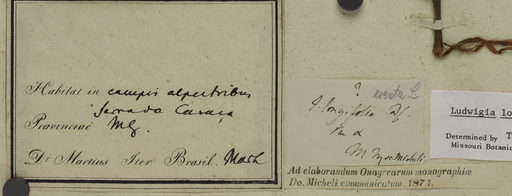 Habitat in campis alpestribus
Serra da Caraça
Provinciae MG.
Dr. Martius Iter Brasil. Mart
?
erecta L
J. longifolia DC.
Var α
M. Micheli.
Ad elaborandum Onagrearum monographiae
Do. Micheli communicatum. 1874.
Ludwigia lo
Determined by T
Missouri Botanic